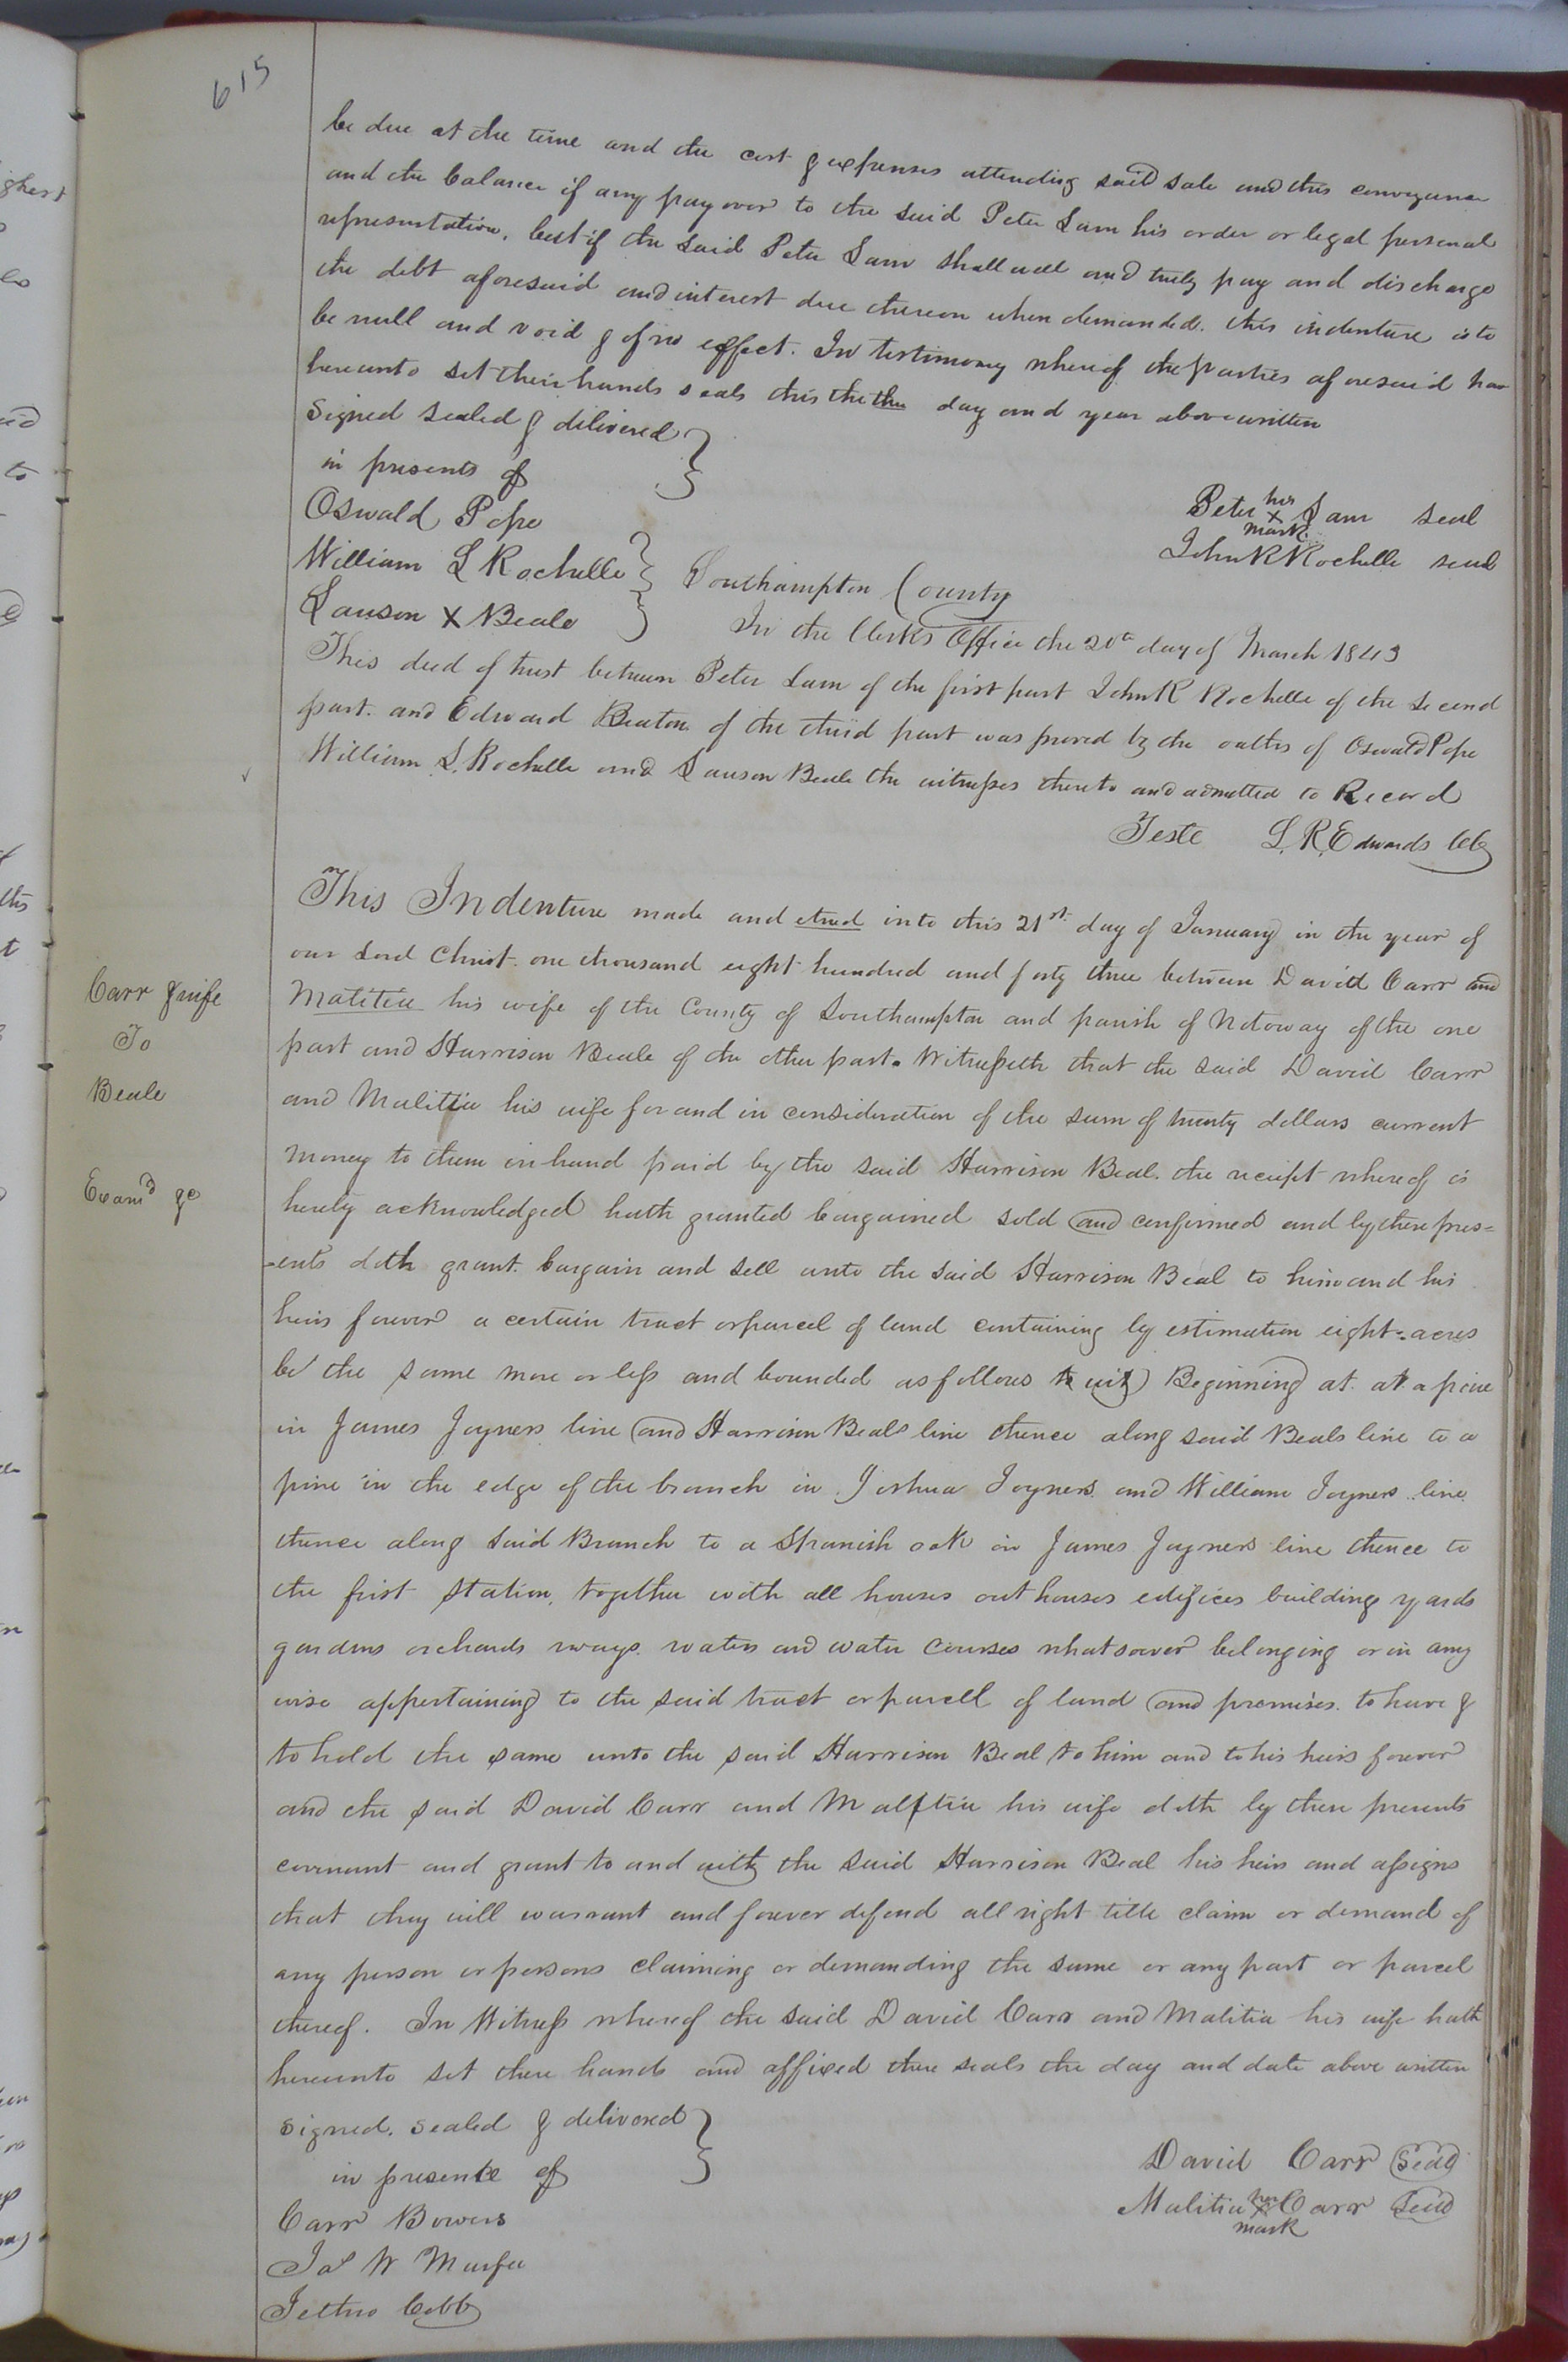 615
be due at the time and the cost & expenses attending said sale and this conveyance
and the balance if any pay over to the said Peter Sam his order or legal personal
representative, but if the said Peter Sam shall well and truly pay and discharge
the debt aforesaid and interest due thereon when demanded. this indenture is to
be null and void & of no effect. In testimony whereof the parties aforesaid have
hereunto set their hands seals this the the day and year above written
Signed sealed & delivered
in presents of
Oswald Pope
William L Rochelle
Lawson X Beale
Peter his X mark Sam seal
John R Rochelle seal
Southampton County
In the Clerks Office the 20th day of March 1843
This deed of trust between Peter Sam of the first part John R Rochelle of the second
part. and Edward Beaton of the third part was proved by the oaths of Oswald Pope
William L. Rochelle and Lawson Beale the witnesses thereto and admitted to Record
Teste L. R. Edwards Clk
Carr & wife
To
Beale
Examd &c
This Indenture made and etred into this 21st day of January in the year of
our Lord Christ. one thousand eight hundred and forty three between David Carr and
Matitia his wife of the County of Southampton and parish of Notoway of the one
part and Harrison Beale of the other part. Witnesseth that the said David Carr
and Malitia his wife for and in consideration of the sum of twenty dollars current
money to them in hand paid by the said Harrison Beal. the receipt whereof is
hereby acknowledged hath granted bargained sold and confirmed and by these pres=
-ents doth grant. bargain and sell unto the said Harrison Beal to him and his
heirs forever a certain tract or parcel of land containing by estimation eight acres
be the same more or less and bounded as follows to wit) Beginning at. at a pine
in James Joyners line and Harrison Beals line thence along said Beals line to a
pine in the edge of the branch in Joshua Joyners and William Joyners line
thence along said Branch to a Spanish oak in James Joyners line thence to
the first Station, together with all houses out houses edifices building yards
gardens orchards ways. waters and water courses whatsoever belonging or in any
wise appertaining to the said tract or parcell of land and premises. to have &
to hold the same unto the said Harrison Beal to him and to his heirs forever
and the said David Carr and Malitia his wife doth by these presents
covenant and grant to and with the said Harrison Beal his heirs and assigns
that they will warrant and forever defend all right title claim or demand of
any person or persons claiming or demanding the same or any part or parcel
thereof. In Witness whereof the said David Carr and Malitia his wife hath
hereunto set there hands and affixed there seals the day and date above written
Signed. sealed & delivered
in presence of
Carr Bowers
Jas W Murfee
Jethro Cobb
David Carr Seal
Malitia her X mark Carr Seal